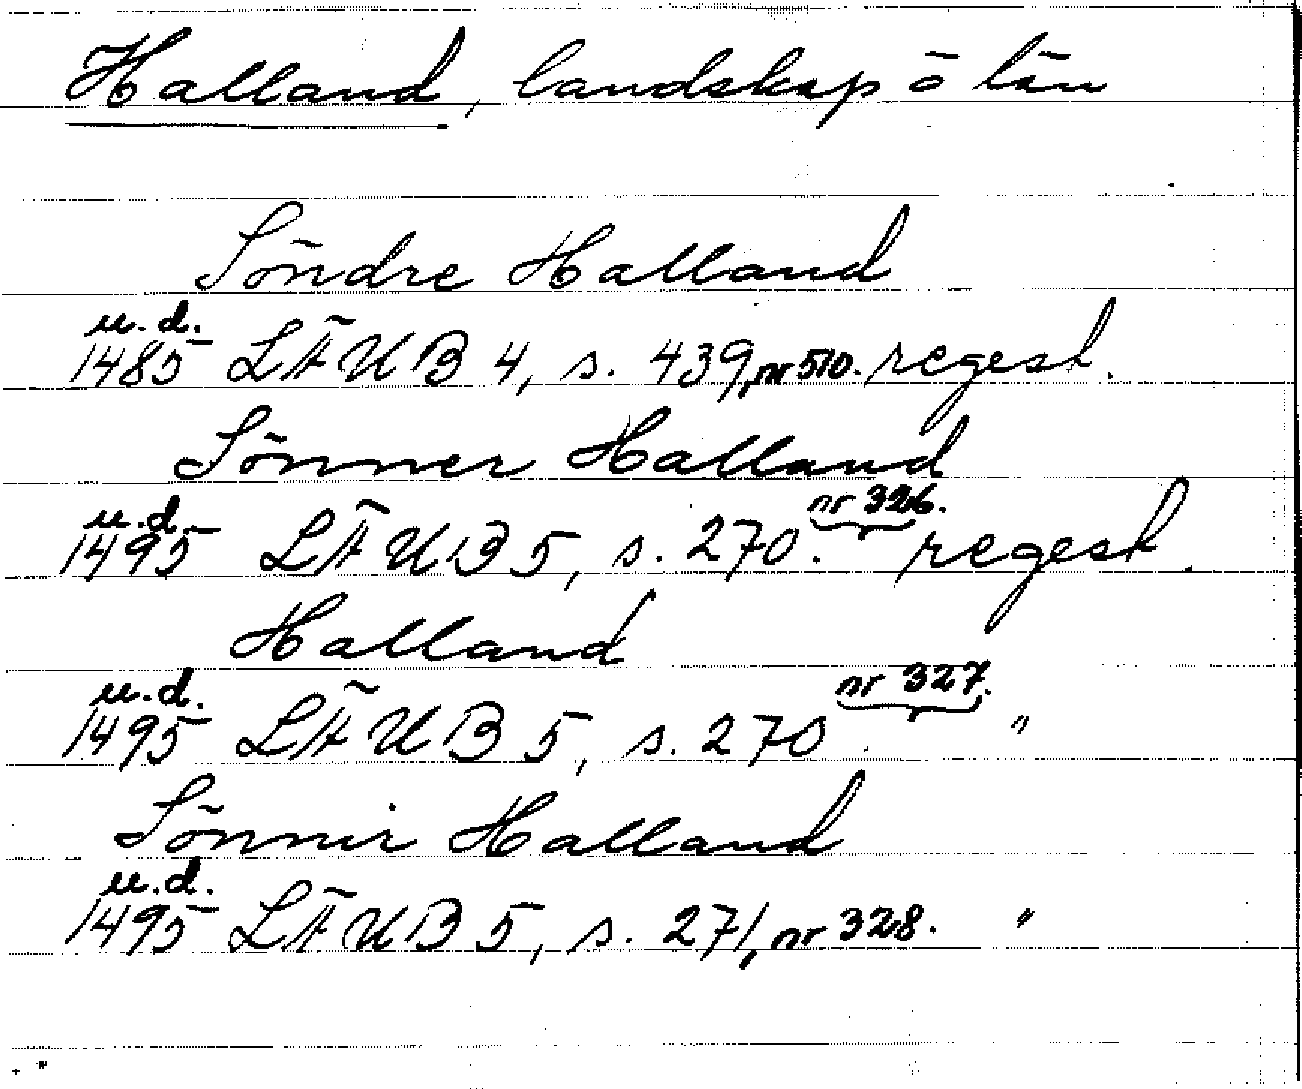 Halland, landskap o län
Söndre Halland
u.d.
1485 LÄUB 4, s. 439, nr 510. regest.
Sönner Halland
nr 326.
u.d.
1495 LÄUB 5, s. 270. regest.
Halland
nr 327.
u.d.
1495 LÄUB 5, s. 270 "
Sönnir Halland
u.d.
1495 LÄUB 5, s. 271, nr 328. "